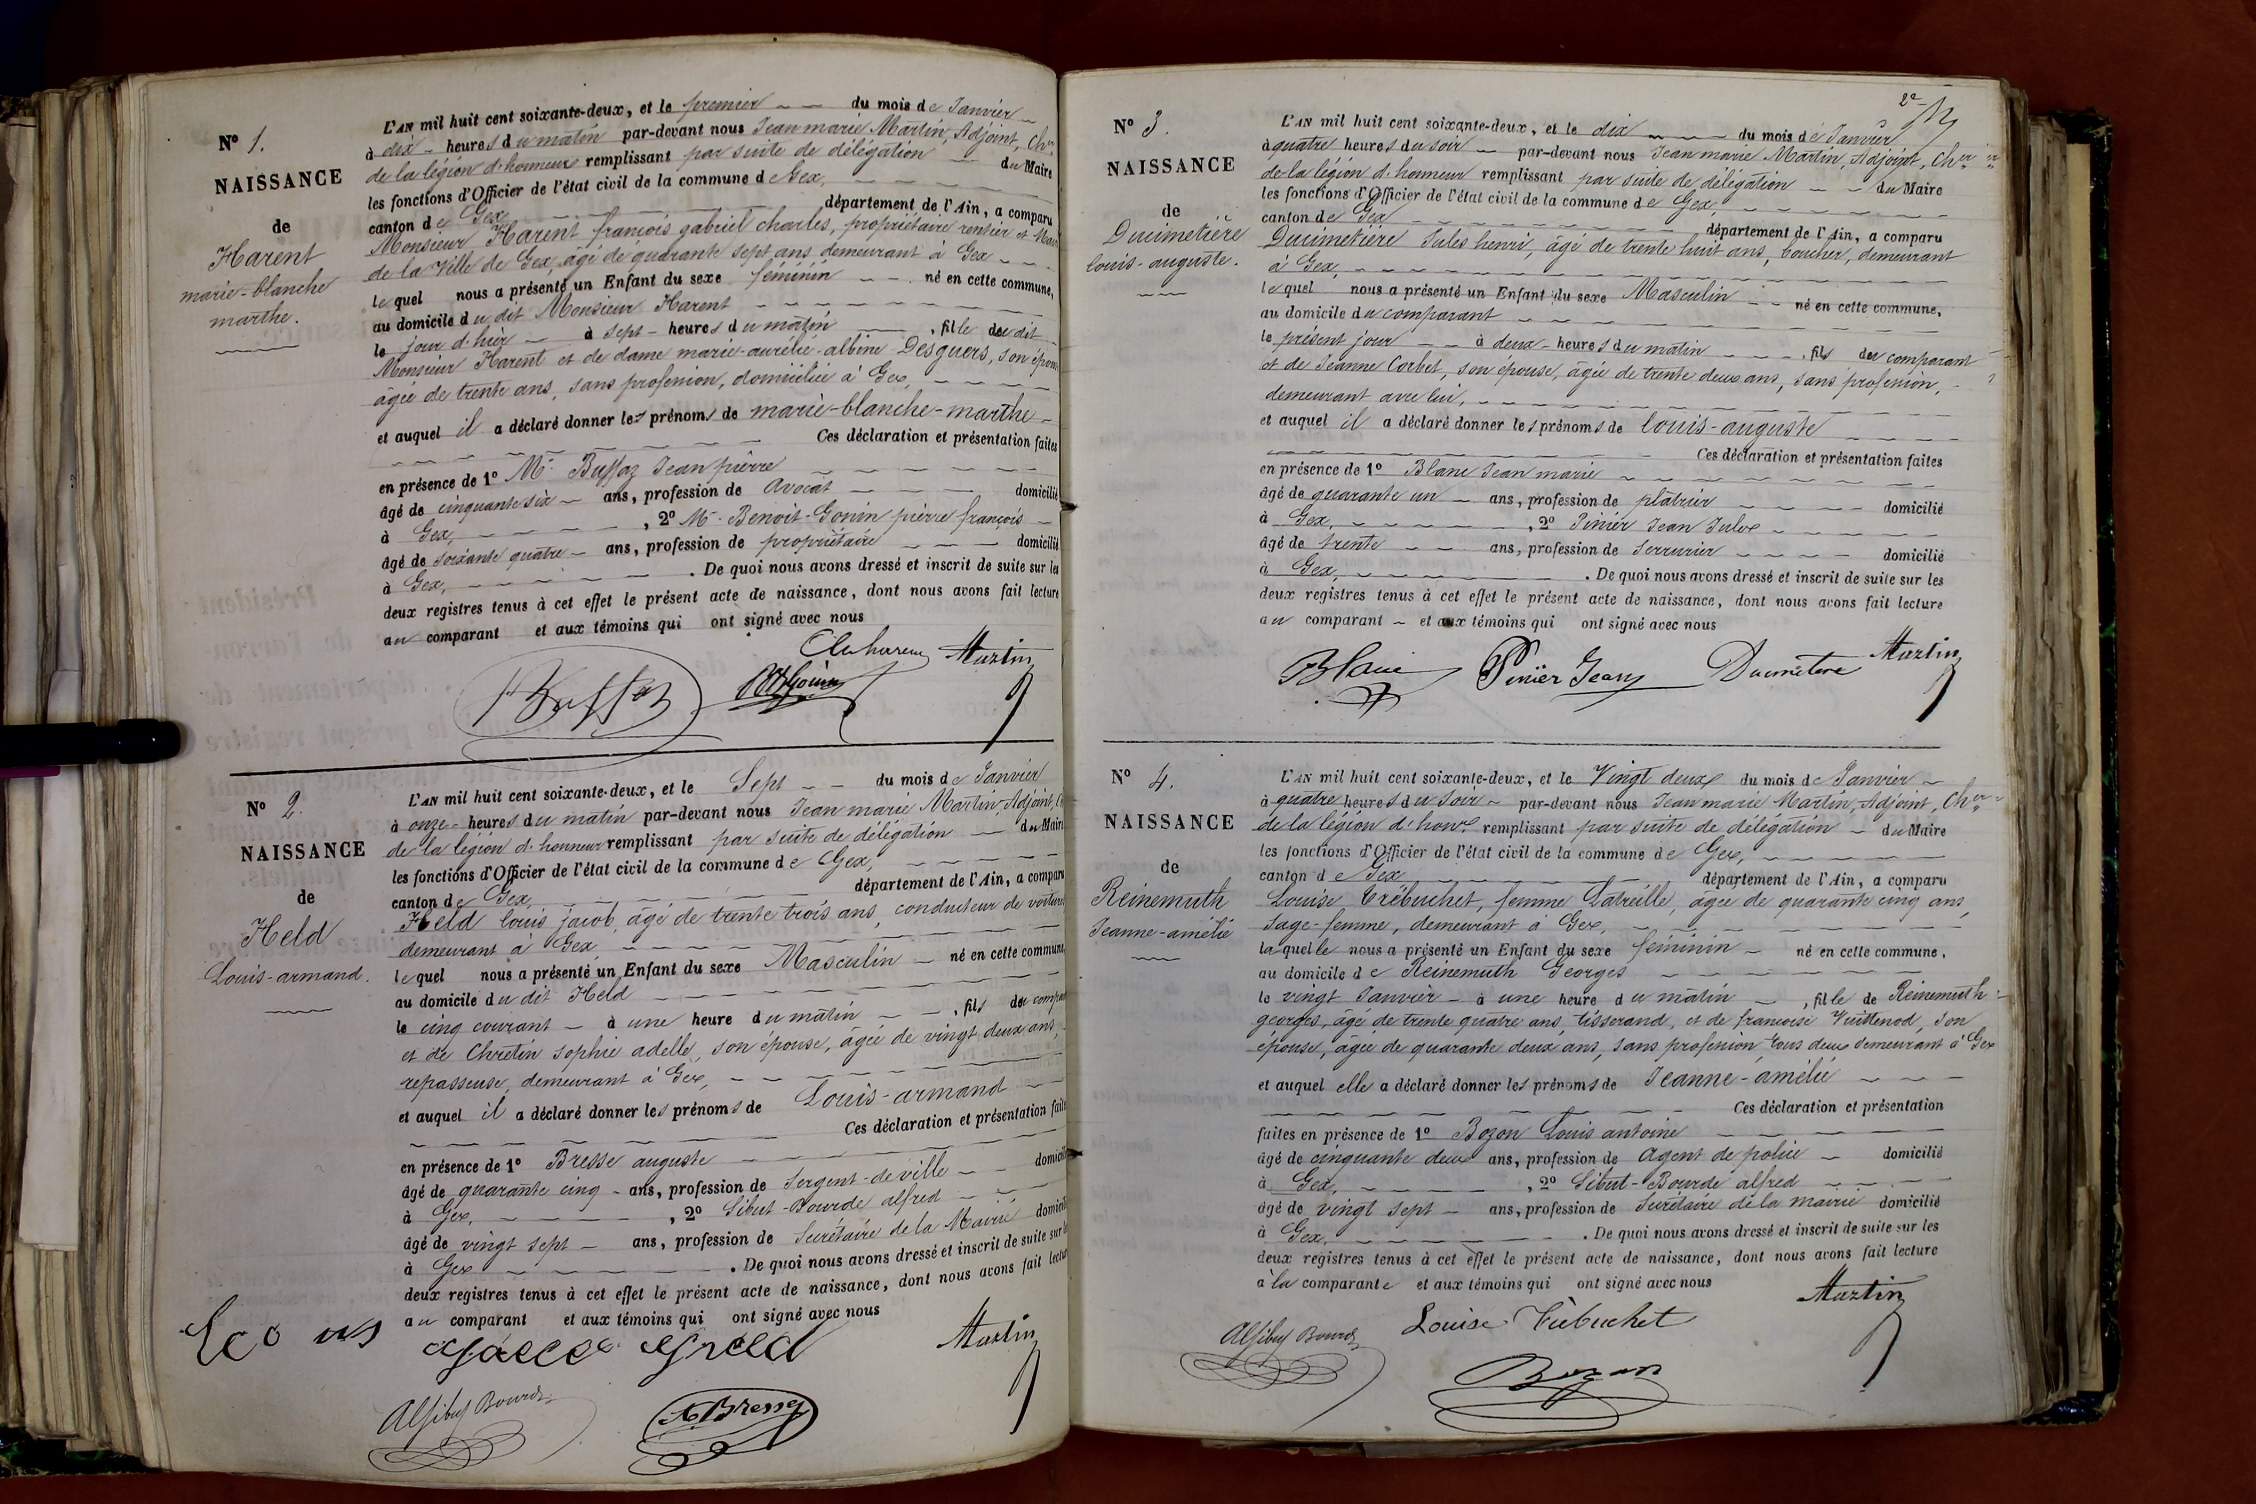 N° 1.
NAISSANCE
de
Harent
marie-blanche
marthe.
L'AN mil huit cent soixante-deux, et le premier du mois de Janvier
à dix heures du matin par-devant nous Jean marie Martin, Adjoint, Cher
de la légion d'honneur remplissant par suite de délégation du Maire
les fonctions d'Officier de l'état civil de la commune de Gex,
canton de Gex département de l'Ain, a comparu
Monsieur Harent françois gabriel charles, propriétaire rentier et Maire
de la Ville de Gex, âgé de quarante sept ans, demeurant à Gex
lequel nous a présenté un Enfant du sexe féminin né en cette commune,
au domicile du dit Monsieur Harent
le jour d'hier à sept heures du matin, fille du dit
Monsieur Harent et de dame marie-aurélie-albine Desguers, son épouse
âgée de trente ans, sans profession, domiciliée à Gex,
et auquel il a déclaré donner les prénoms de marie-blanche-marthe
Ces déclaration et présentation faites
en présence de 1° Mr Buffaz Jean pierre
âgé de cinquante six ans, profession de avocat domicilié
à Gex, , 2° Mr Benoit-Gonin pierre françois
âgé de soixante quatre ans, profession de propriétaire domicilié
à Gex, . De quoi nous avons dressé et inscrit de suite sur les
deux registres tenus à cet effet le présent acte de naissance, dont nous avons fait lecture
au comparant et aux témoins qui ont signé avec nous
Martin
N° 2.
NAISSANCE
de
Held
Louis-armand.
L'AN mil huit cent soixante-deux, et le Sept du mois de Janvier
à onze heures du matin par-devant nous Jean marie Martin, Adjoint, Ch
de la légion d'honneur remplissant par suite de délégation du Maire
les fonctions d'Officier de l'état civil de la commune de Gex,
canton de Gex département de l'Ain, a comparu
Held louis jacob, âgé de trente trois ans, conducteur de voitures
demeurant à Gex,
lequel nous a présenté un Enfant du sexe Masculin né en cette commune,
au domicile du dit Held
le cinq courant à une heure du matin, fils du compar
et de Chretin sophie adelle, son épouse, âgée de vingt deux ans,
repasseuse, demeurant à Gex,
et auquel il a déclaré donner les prénoms de Louis-armand
Ces déclaration et présentation faites
en présence de 1° Bresse auguste
âgé de quarante cinq ans, profession de Sergent-de ville domicilié
à Gex, , 2° Sibut-Bourde alfred
âgé de vingt sept ans, profession de Secrétaire de la Mairie domicilié
à Gex . De quoi nous avons dressé et inscrit de suite sur les
deux registres tenus à cet effet le présent acte de naissance, dont nous avons fait lecture
au comparant et aux témoins qui ont signé avec nous
Martin
A Bresse
2e
N° 3.
NAISSANCE
de
Ducimetière
louis-auguste.
L'AN mil huit cent soixante-deux, et le dix du mois de Janvier
à quatre heures du soir par-devant nous Jean marie Martin, Adjoint, Cher
de la légion d'honneur remplissant par suite de délégation du Maire
les fonctions d'Officier de l'état civil de la commune de Gex,
canton de Gex département de l'Ain, a comparu
Ducimetière Jules henri, âgé de trente huit ans, boucher, demeurant
à Gex,
lequel nous a présenté un Enfant du sexe Masculin né en cette commune,
au domicile du comparant
le présent jour à deux heures du matin, fils du comparant
et de Jeanne Corbet, son épouse, âgée de trente deux ans, sans profession,
demeurant avec lui,
et auquel il a déclaré donner les prénoms de louis-auguste
Ces déclaration et présentation faites
en présence de 1° Blanc Jean marie
âgé de quarante un ans, profession de plâtrier domicilié
à Gex, , 2° Pinier Jean Jules
âgé de trente ans, profession de Serrurier domicilié
à Gex, . De quoi nous avons dressé et inscrit de suite sur les
deux registres tenus à cet effet le présent acte de naissance, dont nous avons fait lecture
au comparant et aux témoins qui ont signé avec nous
Blanc Pinier Jean Ducimetiere Martin
N° 4.
NAISSANCE
de
Reinemuth
Jeanne-amélie
L'AN mil huit cent soixante-deux, et le Vingt deux du mois de Janvier
à quatre heures du Soir par-devant nous Jean marie Martin, Adjoint, Cher
de la légion d'honr remplissant par suite de délégation du Maire
les fonctions d'Officier de l'état civil de la commune de Gex,
canton de Gex département de l'Ain, a comparu
Louise Trébuchet, femme Latreille, âgée de quarante cinq ans,
Sage-femme, demeurant à Gex,
laquelle nous a présenté un Enfant du sexe féminin né en cette commune,
au domicile de Reinemuth Georges
le vingt Janvier à une heure du matin, fille de Reinemuth
georges, âgé de trente quatre ans, tisserand, et de francoise Vuittenod, son
épouse, âgée de quarante deux ans, sans profession, tous deux demeurant à Gex
et auquel elle a déclaré donner les prénoms de Jeanne-amélie
Ces déclaration et présentation
faites en présence de 1° Bozon Louis antoine
âgé de cinquante deux ans, profession de agent de police domicilié
à Gex, , 2° Sibut-Bourde alfred
âgé de vingt sept ans, profession de Secrétaire de la mairie domicilié
à Gex, . De quoi nous avons dressé et inscrit de suite sur les
deux registres tenus à cet effet le présent acte de naissance, dont nous avons fait lecture
à la comparante et aux témoins qui ont signé avec nous
Martin
Louise Trébuchet
Bozon